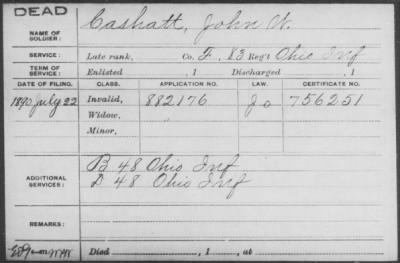 DEAD
NAME OF SOLDIER: Cashatt, John W.
SERVICE: Late rank, Co. F, 83 Reg't Ohio Inf
TERM OF SERVICE: Enlisted , 1 Discharged , 1
DATE OF FILING. CLASS. APPLICATION NO. LAW. CERTIFICATE NO.
1890 July 22 Invalid, 882176 756251
Widow,
Minor,
ADDITIONAL SERVICES: B 48 Ohio Inf
D 48 Ohio Inf
REMARKS:
Died , 1 , at